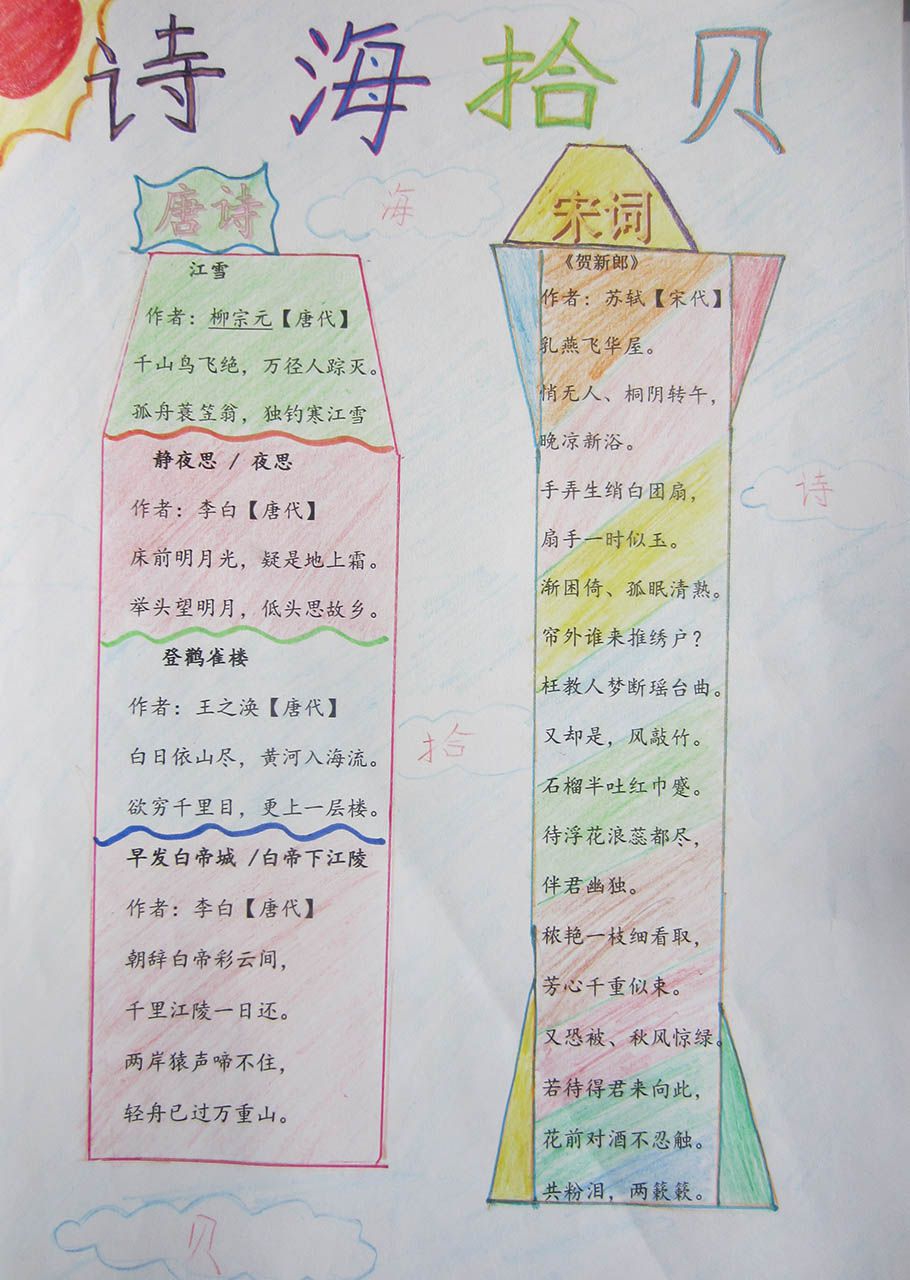 诗海拾贝
唐诗
江雪
作者：柳宗元【唐代】
千山鸟飞绝，万径人踪灭。
孤舟蓑笠翁，独钓寒江雪
静夜思 / 夜思
作者：李白【唐代】
床前明月光，疑是地上霜。
举头望明月，低头思故乡。
登鹳雀楼
作者：王之涣【唐代】
白日依山尽，黄河入海流。
欲穷千里目，更上一层楼。
早发白帝城 /白帝下江陵
作者：李白【唐代】
朝辞白帝彩云间，
千里江陵一日还。
两岸猿声啼不住，
轻舟已过万重山。
宋词
《贺新郎》
作者：苏轼【宋代】
乳燕飞华屋。
悄无人、桐阴转午，
晚凉新浴。
手弄生绡白团扇，
扇手一时似玉。
渐困倚、孤眠清熟。
帘外谁来推绣户？
枉教人梦断瑶台曲。
又却是，风敲竹。
石榴半吐红巾蹙。
待浮花浪蕊都尽，
伴君幽独。
秾艳一枝细看取，
芳心千重似束。
又恐被、秋风惊绿。
若待得君来向此，
花前对酒不忍触。
共粉泪，两簌簌。
海
诗
拾
贝